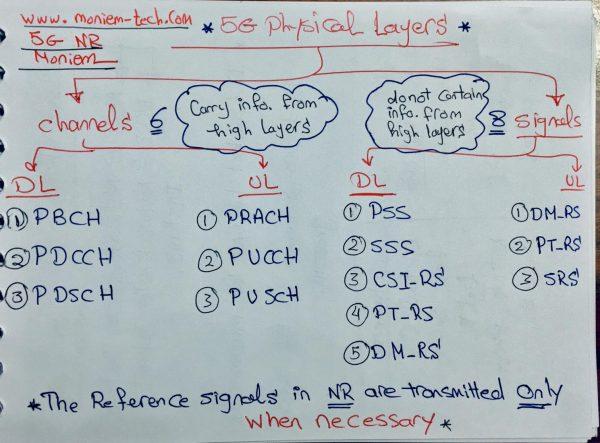 www.moniem-tech.com
* 5G Physical Layers *
5G NR
Moniem
channels 6
Carry info. from
high layers
do not contain
info. from
high layers
8 signals
DL
① PBCH
② PDCCH
③ PDSCH
UL
① PRACH
② PUCCH
③ PUSCH
DL
① PSS
② SSS
③ CSI_RS
④ PT_RS
⑤ DM_RS
UL
① DM_RS
② PT_RS
③ SRS
* The Reference signals in NR are transmitted Only
when necessary *